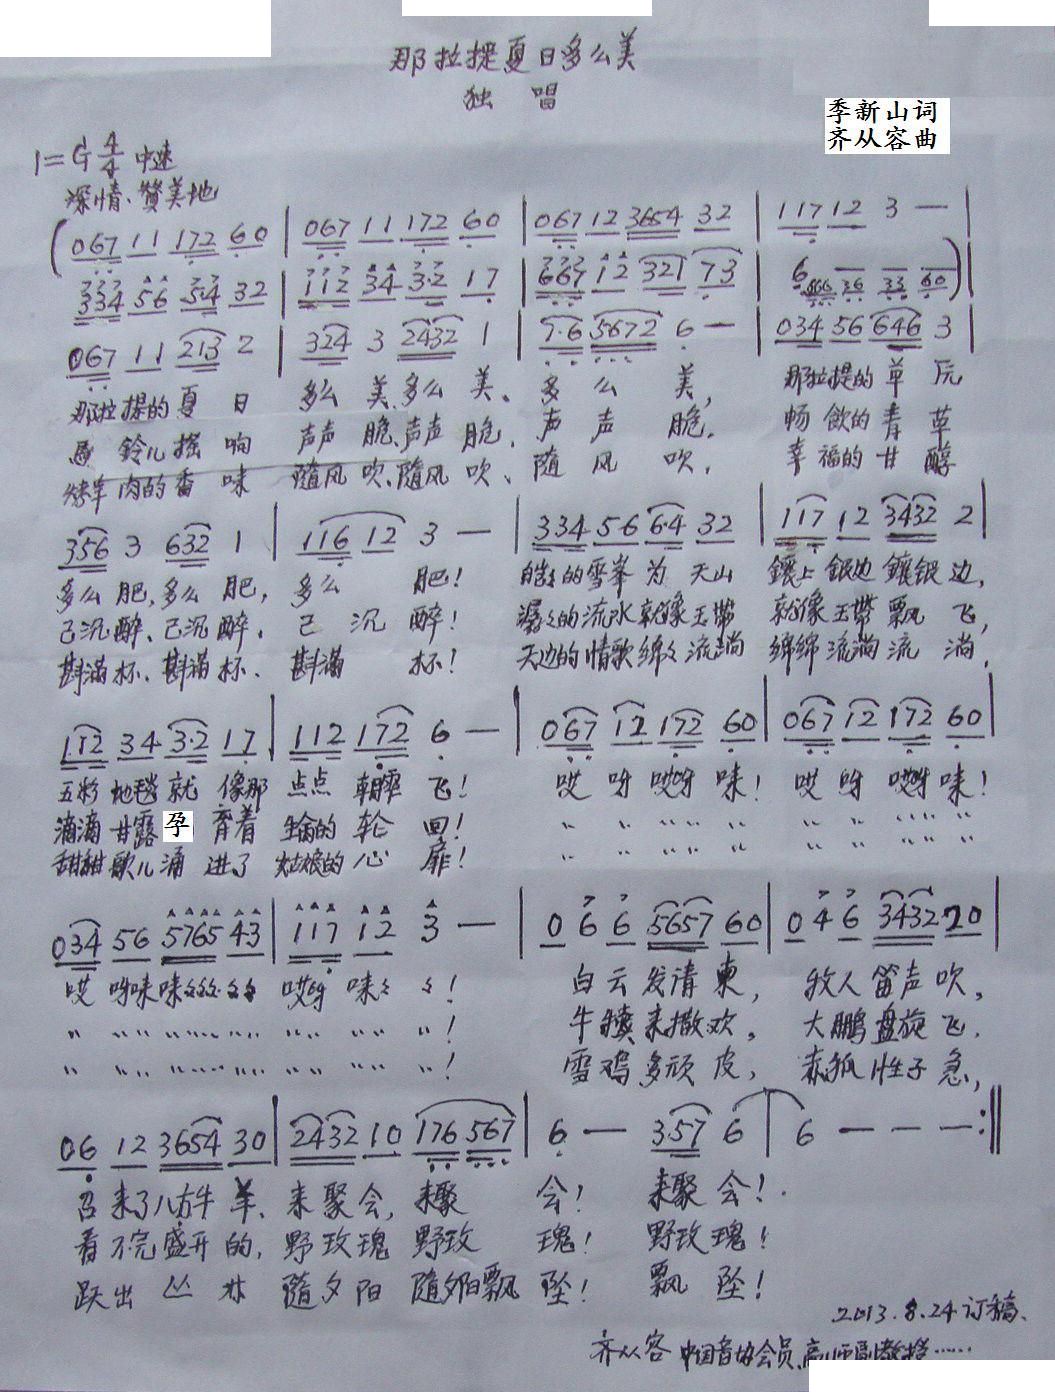 那拉提夏日多么美
独 唱
季新山词
齐从容曲
1=G 4/4 中速
深情、赞美地
(067 11 172 60 | 067 11 172 60 | 067 12 3654 32 | 117 12 3 — |
334 56 5·4 32 | 112 34 3·2 17 | 667 12 321 73 | 6 — — — 666 36 33 60) |
067 11 213 2 | 324 3 2432 1 | 7·6 5672 6 — | 034 56 646 3
那拉提的夏日 多么美、多么美、多么美, 那拉提的草原
马铃儿摇响 声声脆、声声脆、声声脆, 畅饮的青草
烤羊肉的香味 随风吹、随风吹、随风吹, 幸福的甘醇
356 3 632 1 | 116 12 3 — | 334 56 6·4 32 | 117 12 3432 2 |
多么肥,多么肥,多么肥! 皑々的雪峯为天山 镶上银边镶银边,
已沉醉、已沉醉、已沉醉! 潺々的流水就像玉带 就像玉带飘飞,
斟满杯、斟满杯、斟满杯! 天边的情歌绵々流淌 绵绵流淌流淌,
112 34 3·2 17 | 112 172 6 — | 067 12 172 60 | 067 12 172 60 |
五彩地毯就像那点点朝霞飞! 哎呀哎呀咪! 哎呀哎呀咪!
滴滴甘露孕育着生命的轮回! 〃 〃 〃〃 〃 〃 〃 〃〃 〃
甜甜歌儿涌进了姑娘的心扉! 〃 〃 〃〃 〃 〃 〃 〃〃 〃
034 56 5765 43 | 117 12 3 — | 0 6 6 5657 60 | 0 4 6 3432 20 |
哎呀咪咪々々々々々 哎呀咪々々! 白云发请柬, 牧人笛声吹,
〃 〃〃 〃〃〃〃 〃〃 〃〃 〃〃 〃! 牛犊来撒欢, 大鹏盘旋飞,
〃 〃〃 〃〃〃〃 〃〃 〃〃 〃〃 〃! 雪鸡多顽皮, 赤狐性子急,
06 12 3654 30 | 2432 10 176 567 | 6 — 357 6 | 6 — — — :‖
召来了八方牛羊、来聚会,来聚会! 来聚会!
看不完盛开的,野玫瑰野玫瑰! 野玫瑰!
跃出丛林随夕阳随夕阳飘坠! 飘坠!
2013.8.24订稿、
齐从容 中国音协会员、高师副教授……